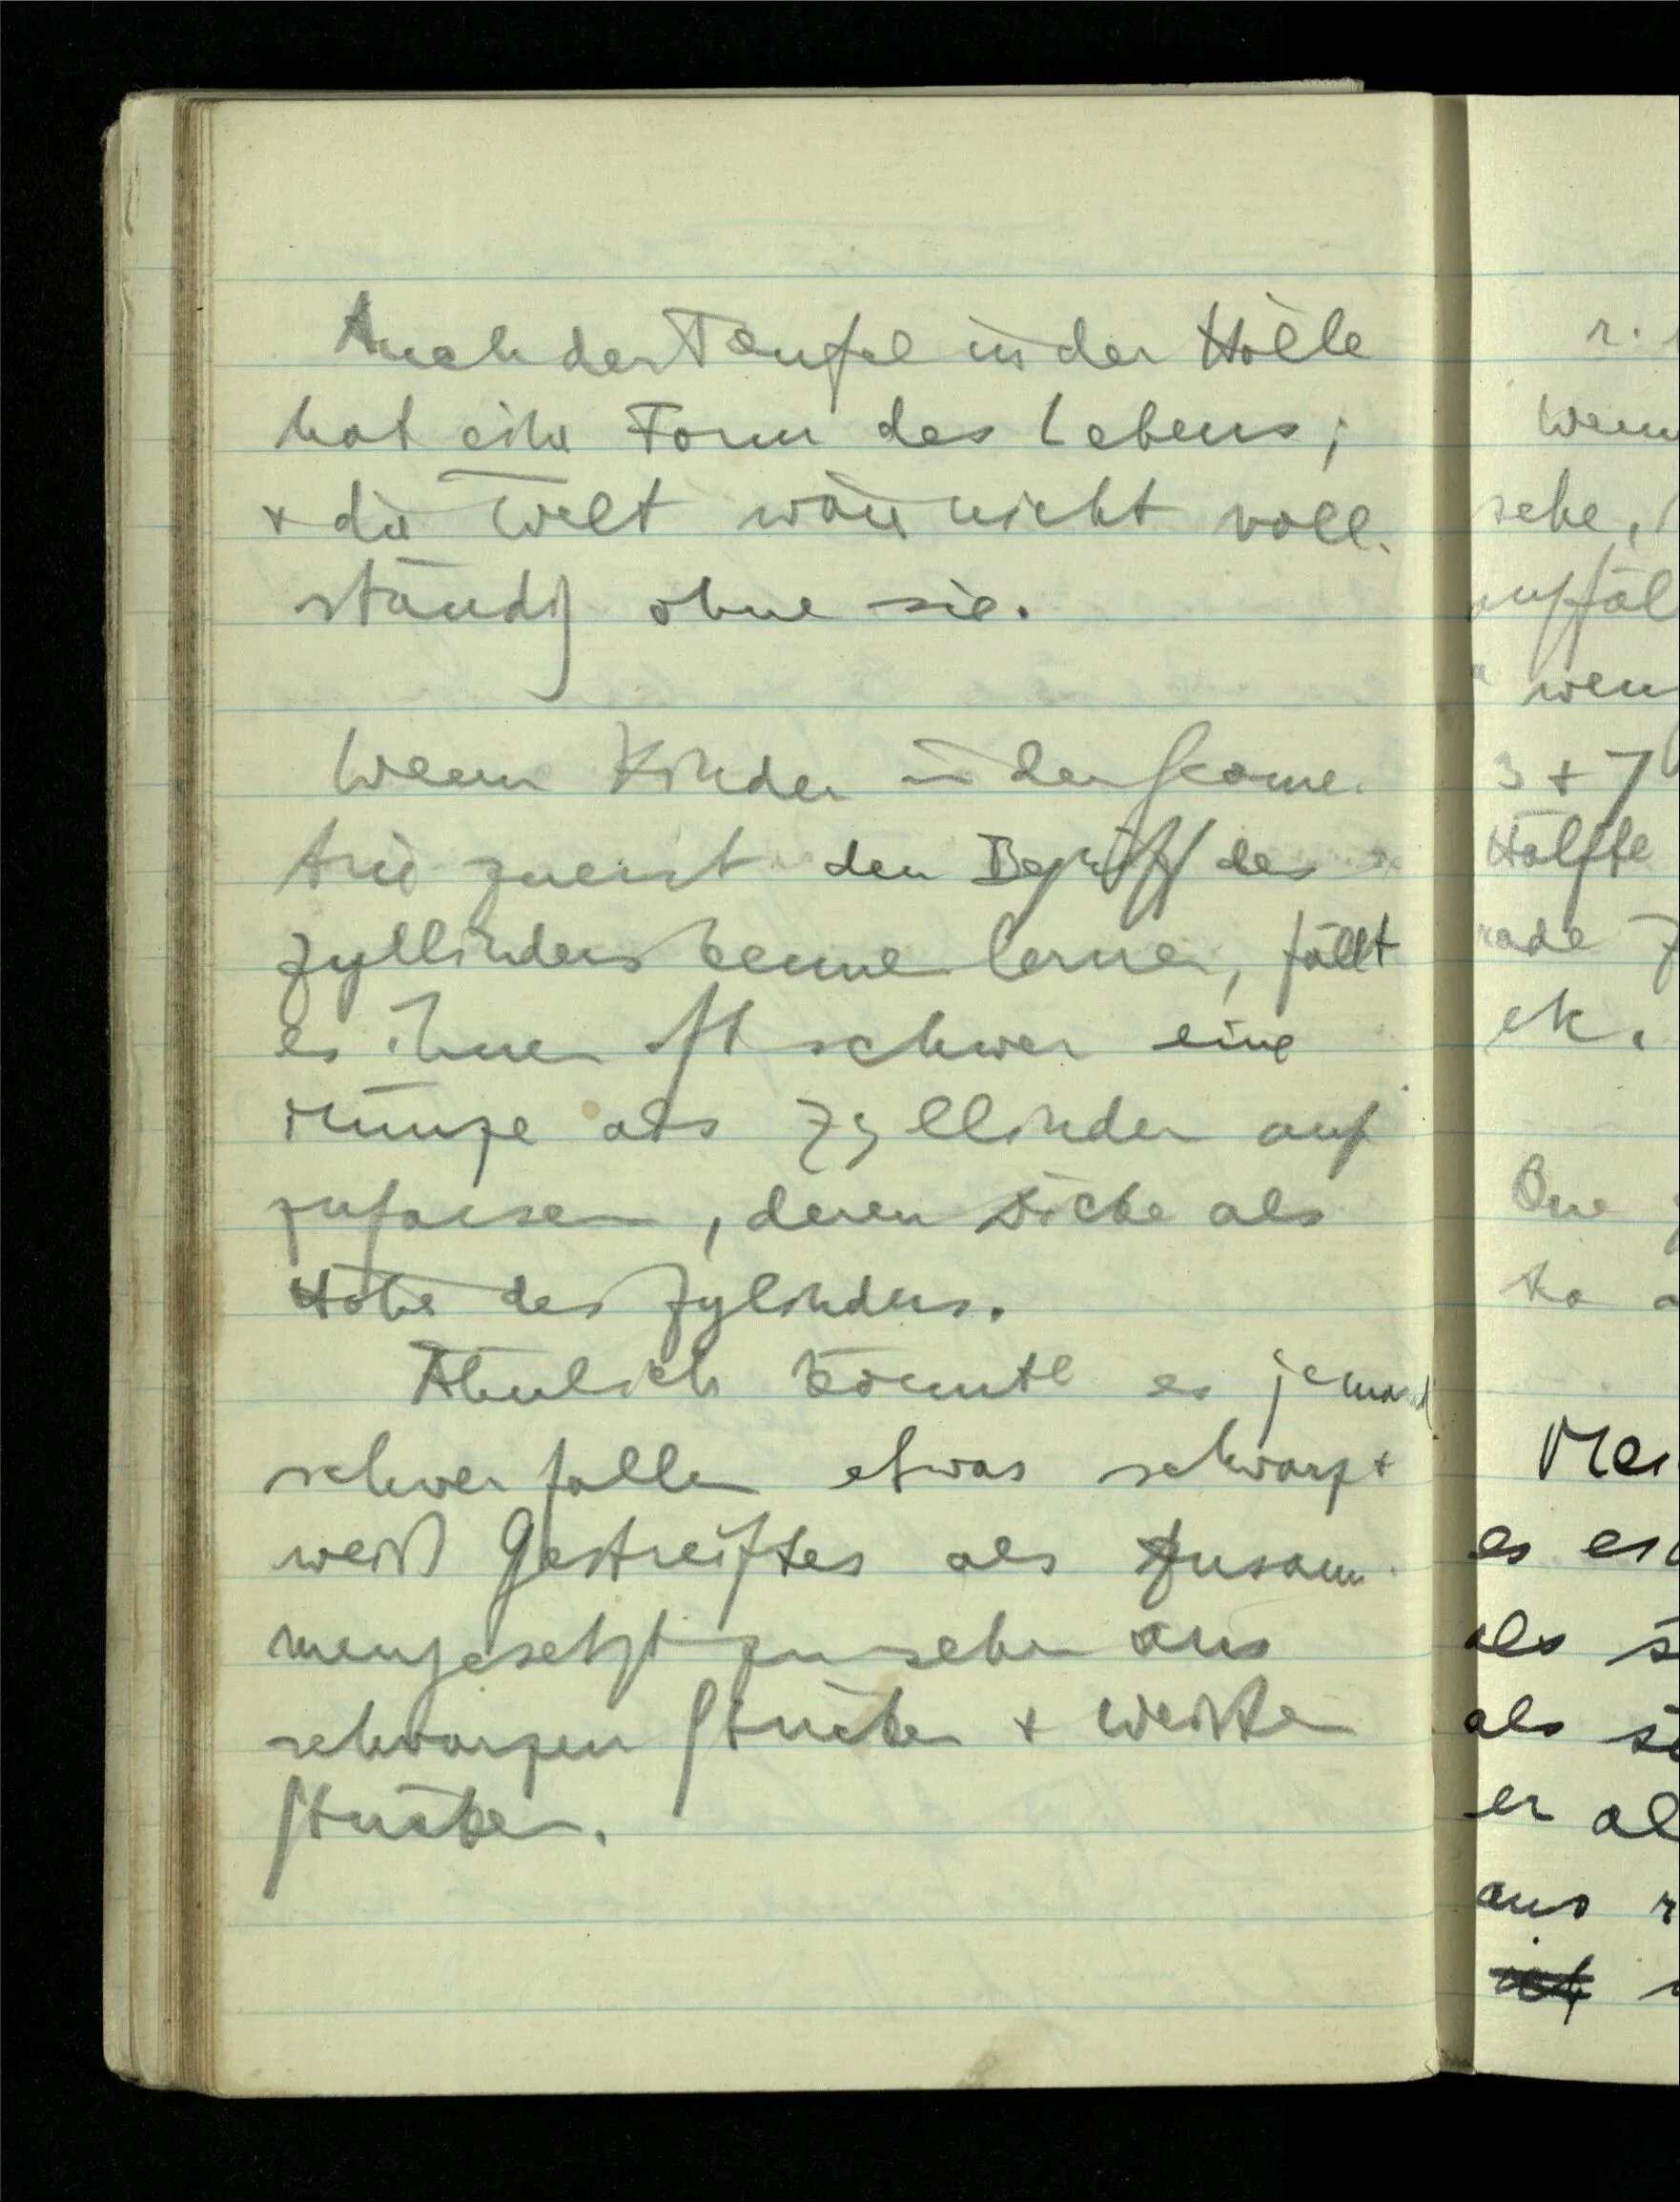 Auch der Teufel in der Hölle
hat eine Form des Lebens;
+ die Welt wäre nicht voll-
ständig ohne sie.
Wenn Kinder in der Geome-
trie zuerst den Begriff des
Zyllinders kennen lernen, fällt
es ihnen oft schwer eine
Münze als Zyllinder auf
zufassen, deren Dicke als
Höhe des Zylinders.
Ähnlich könnte es jemand
schwer fallen etwas schwarz +
weiß Gestreiftes als zusam-
mengesetzt zu sehen aus
schwarzen Stücken + weißen
Stücken.
r.
Wenn
sehe,
auffäl
wen
3 + 7
Hälfte
rade
etc.
to
es
als
als
er
aus